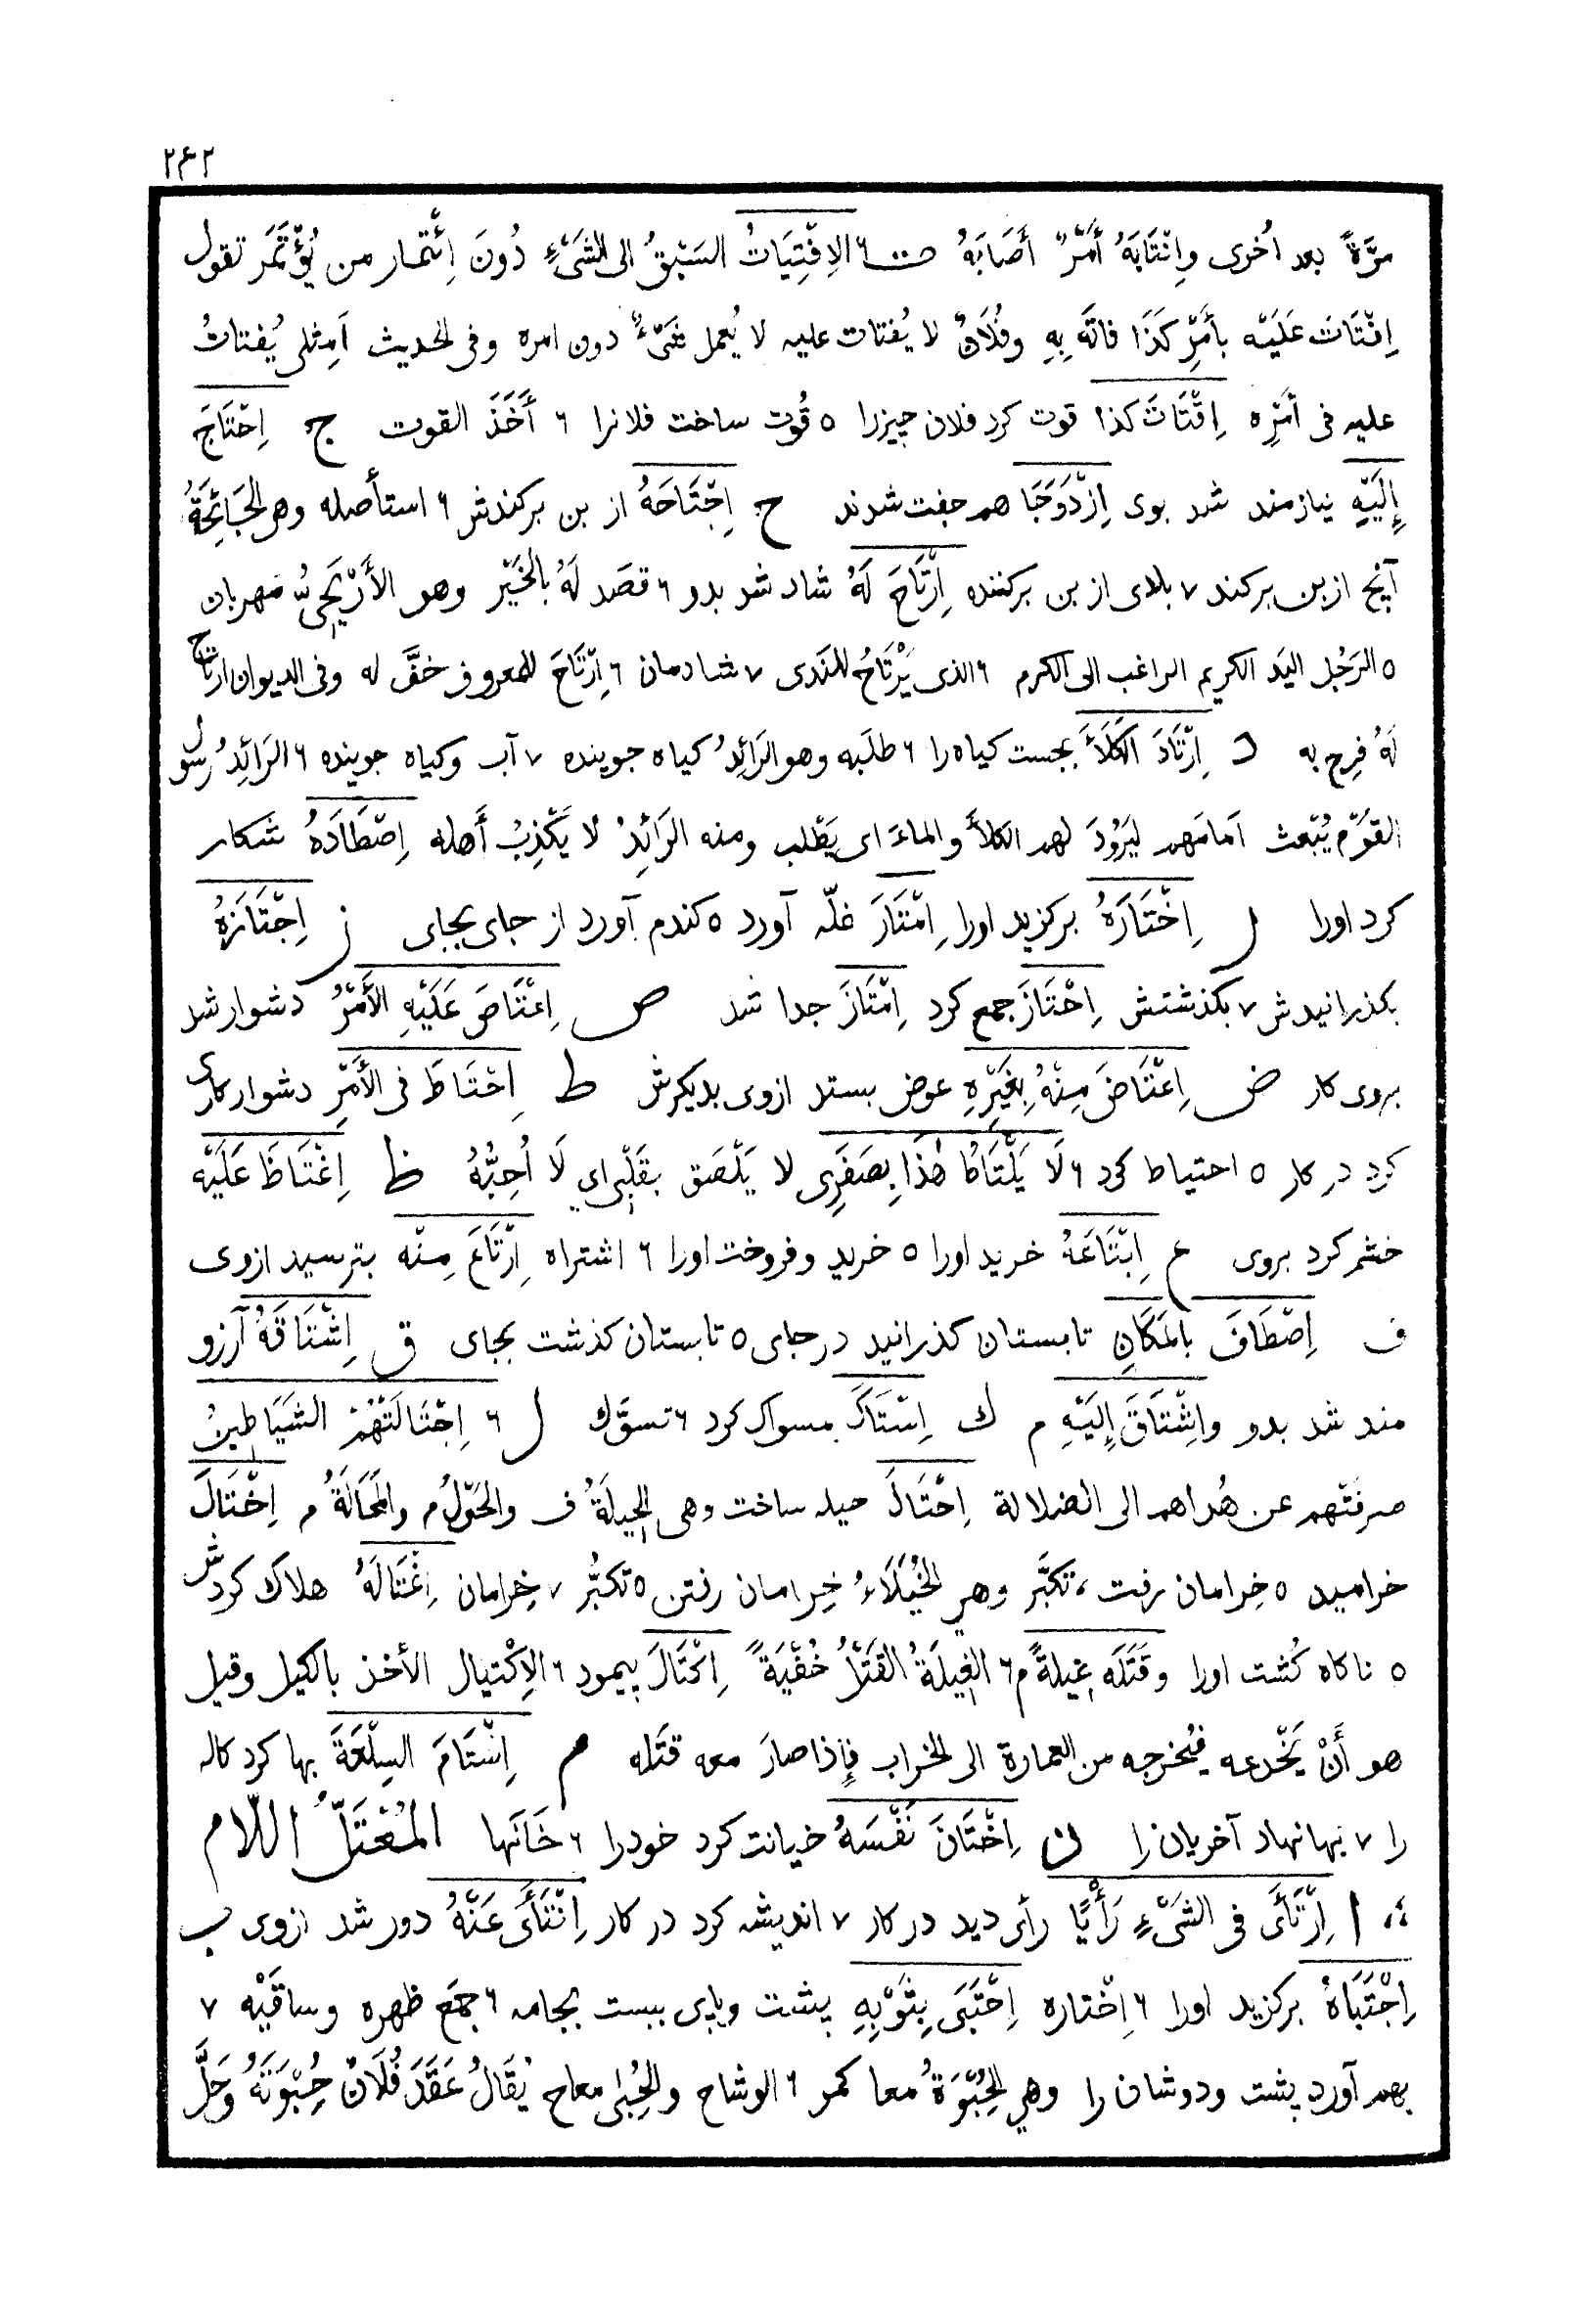 ۲۶۲
مرَّةً بعد اُخرى وانْتَابَهُ أَمْرٌ أَصَابَهُ ت ۶ الاِفْتِيَاتُ السَبْقُ الى الشَیْءِ دُونَ اِئْتمار من يُؤْتَمَر تقول
اِفْتَاتَ عَلَيْه بأَمْرِ كَذَا فاتَه بِهِ وفُلَانٌ لا يُفتات عليه لا يُعمل شَیْءٌ دون امره وفى الحديث اَمِثلى يُفتاتُ
عليه فى أَمْرِه اِقْتَاتَ كذا قوت كرد فلان چيزرا ۵ قُوت ساخت فلانرا ۶ أَخَذَ القوت ج اِحْتَاجَ
إِلَيْهِ نيازمند شد بوى اِزْدَوَجَا هم جفت شدند ح اِجْتَاحَهُ از بن بركندش ۶ استأصله وهى الجَائِحَةُ
آنچ از بن بركند ۷ بلاى از بن بركننده اِرْتَاحَ لَهُ شاد شد بدو ۶ قصَد لَهُ بالخَيْر وهو الأَرْيَحِیُّ مهربان
۵ الرَجُل اليَد الكريم الراغب الى الكرم ۶ الذى يَرْتَاحُ للنَدى ۷ شادمان ۶ اِرْتَاحَ للمعروف خفَّ له وفى الديوان ارتاح
لَهُ فرِح به د اِرْتَادَ الكَلَأَ بجست كياه را ۶ طلَبه وهو الرَائِدُ كياه جوينده ۷ آب وكياه جوينده ۶ الرَائِدُ رسول
القَوْم يُبْعث اَمامَهم ليَرُودَ لهم الكلأ والماءَ اى يَطْلب ومنه الرَائِدُ لا يَكْذِبُ أَهله اِصْطَادَهُ شكار
كرد اورا ر اِخْتَارَهُ بركزيد اورا اِمْتَارَ غلّه آورد ۵ كندم آورد از جاى بجاى ز اِجْتَازَهُ
بكذرانيدش ۷ بكذشتش اِحْتَازَ جمع كرد اِمْتَازَ جدا شد ص اِعْتَاصَ عَلَيْهِ الأَمْرُ دشوار شد
بروى كار ض اِعْتَاضَ مِنْهُ بِغَيْرِهِ عوض بستد ازوى بديكرش ط اِحْتَاطَ فى الأَمْرِ دشوار كارى
كرد در كار ۵ احتياط كرد ۶ لَا يَلْتَاطُ هٰذَا بِصَفَرِى لا يَلْصَق بقَلْبى اي لَا اُحِبُّهُ ظ اِغْتَاظَ عَلَيْه
خشم كرد بروى ع اِبْتَاعَهُ خريد اورا ۵ خريد وفروخت اورا ۶ اشتراه اِرْتَاعَ مِنْه بترسيد ازوى
ف اِصْطَافَ بالمَكَانِ تابستان كذرانيد در جاى ۵ تابستان كذشت بجاى ق اِشْتَاقَهُ آرزو
مند شد بدو واِشْتَاقَ إِلَيْهِ م ك اِسْتَاكَ مسواك كرد ۶ تسوَّك ل ۶ اِجْتَالَتْهُمْ الشَيَاطِينُ
صرفَتْهم عن هُداهم الى الضلالة اِحْتَالَ حيله ساخت وهى الحِيلَةُ ف والحَوْلُ م والمَحَالَةُ م اِخْتَالَ
خراميد ۵ خِرامان رفت ۶ تكبَّر وهي الخُيَلَاءُ خِرامان رفتن ۵ تكبُّر ۷ خِرامان اِغْتَالَهُ هلاك كردش
۵ ناكاه كُشت اورا وقَتَلَه غِيلةً م ۶ الغِيلَةُ القَتْلُ خُفْيَةً اِكْتَالَ بپيمود ۶ الاِكْتيال الأخذ بالكيل وقيل
هو أَنْ يَخْدعه فيُخرجه من العمارة الى الخراب فإِذا صارَ معه قتَله م اِسْتَامَ السِلْعَةَ بها كرد كاله
را ۷ بها نهاد آخريان را ن اِخْتَانَ نَفْسَهُ خيانت كرد خودرا ۶ خَانَها المُعْتَلُّ اللّام
ا اِرْتَأَى فى الشَیْءِ رَأْيًا رأى ديد در كار ۷ انديشه كرد در كار اِنْتَأَى عَنْهُ دور شد ازوى ب
اِجْتَبَاهُ بركزيد اورا ۶ اِخْتاره اِحْتَبَى بِثَوْبِهِ پشت وپاى ببست بجامه ۶ جَمَع ظهره وساقَيْه ۷
بهم آورد پشت ودوشان را وهي الحُبْوَةُ معا كمر ۶ الوشاح والحُبٰى معاح يُقَالُ عَقَدَ فُلَانٌ حُبْوَتَهُ وَحَلَّ